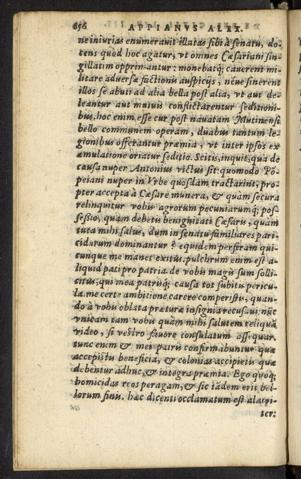 656 APPIANVS ALEX.
ne iniurias enumerauit illatas sibi à senatu, do-
tens quod hoc agatur, vt omnes Cæsariani sin-
gillatim opprimantur: monebatq́; cauerent mi-
litare aduersæ factionis auspicijs, néue sinerent
illos se abuti ad alia bella post alia, vt aut de-
leantur aut mutuis conflictarentur seditioni-
bus, hoc enim esse cur post nauatam Mutinensi
bello communem operam, duabus tantum le-
gionibus offerantur præmia, vt inter ipsos ex
æmulatione oriatur seditio. Scitis, inquit, qua de
causa nuper Antonius victus sit: quomodo Pō-
peiani nuper in Vrbe quosdam tractarint, pro-
pter accepta à Cæsare munera, & quàm secura
relinquitur vobis agrorum pecuniarumq́; pos-
sessio, quam debetis benignitati Cæsaris, quàm
tuta mihi salus, dum in senatu familiares parri-
cidarum dominantur? equidem perferam qui-
cunque me manet exitus. pulchrum enim est a-
liquid pati pro patria de vobis magis sum solli-
citus, qui mea patriæq́; causa tot subitis pericu-
la. me certe ambitione carere comperistis, quan-
do à vobis oblata præturæ insignia recusaui: nūc
vnicam tam vobis quàm mihi salutem reliquā
video, si vestro fauore consulatum assequar.
tunc enim & mei patris confirmabuntur quæ
accepistis beneficia, & coloniæ accipietis quæ
debentur adhuc, & integra præmia. Ego quoq́;
homicidas reos peragam, & sic tādem erit bel-
lorum finis. hæc dicenti acclamatum est alacri-
ter: